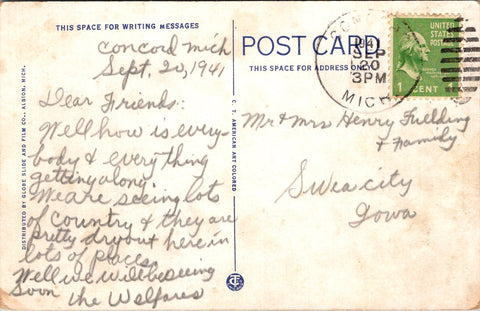 THIS SPACE FOR WRITING MESSAGES
concord mich
Sept. 20, 1941
Dear Friends:
Well how is every-
body & everything
getting along.
We are seeing lots
of country & they are
pretty dry out here in
lots of places.
Well we will be seeing
soon the Welfares
DISTRIBUTED BY GLOBE SLIDE AND FILM CO., ALBION, MICH.
C. T. AMERICAN ART COLORED
POST CARD
THIS SPACE FOR ADDRESS ONLY
SEP
20
3PM
MICH
UNITED
STATES
POSTAGE
1 CENT
Mr & Mrs Henry Fielding
& Family
Swea city
Iowa